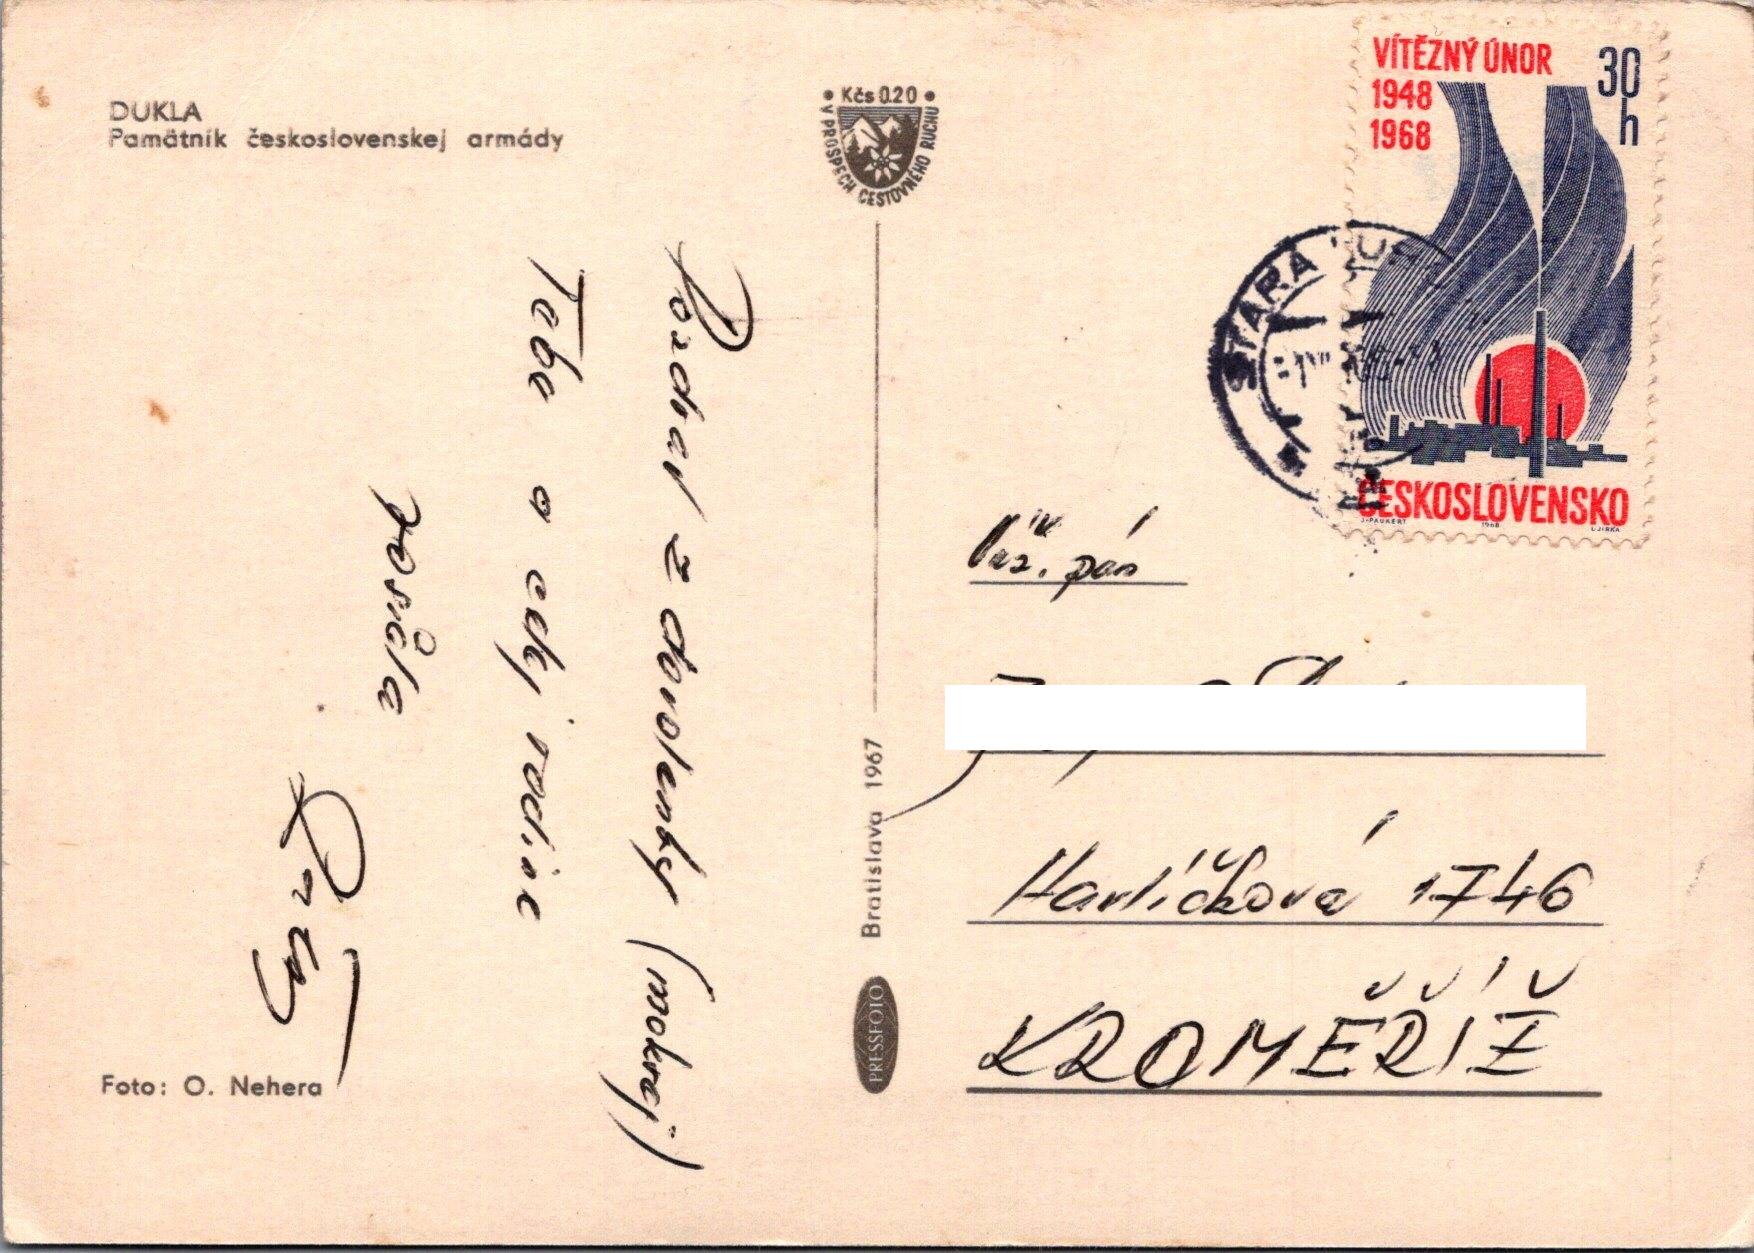 DUKLA
Pamätník československej armády
Kčs 0.20
V PROSPECH CESTOVNÉHO RUCHU
VÍTĚZNÝ ÚNOR
1948
1968
30
h
ČESKOSLOVENSKO
J. PAUKERT 1968 L. JIRKA
STARÁ
Pozdrav z dovolenky (mokrej)
Tebe a celej rodine
posiela
Váž. pán
Havlíčková 1746
KROMĚŘÍŽ
Bratislava 1967
PRESSFOTO
Foto: O. Nehera